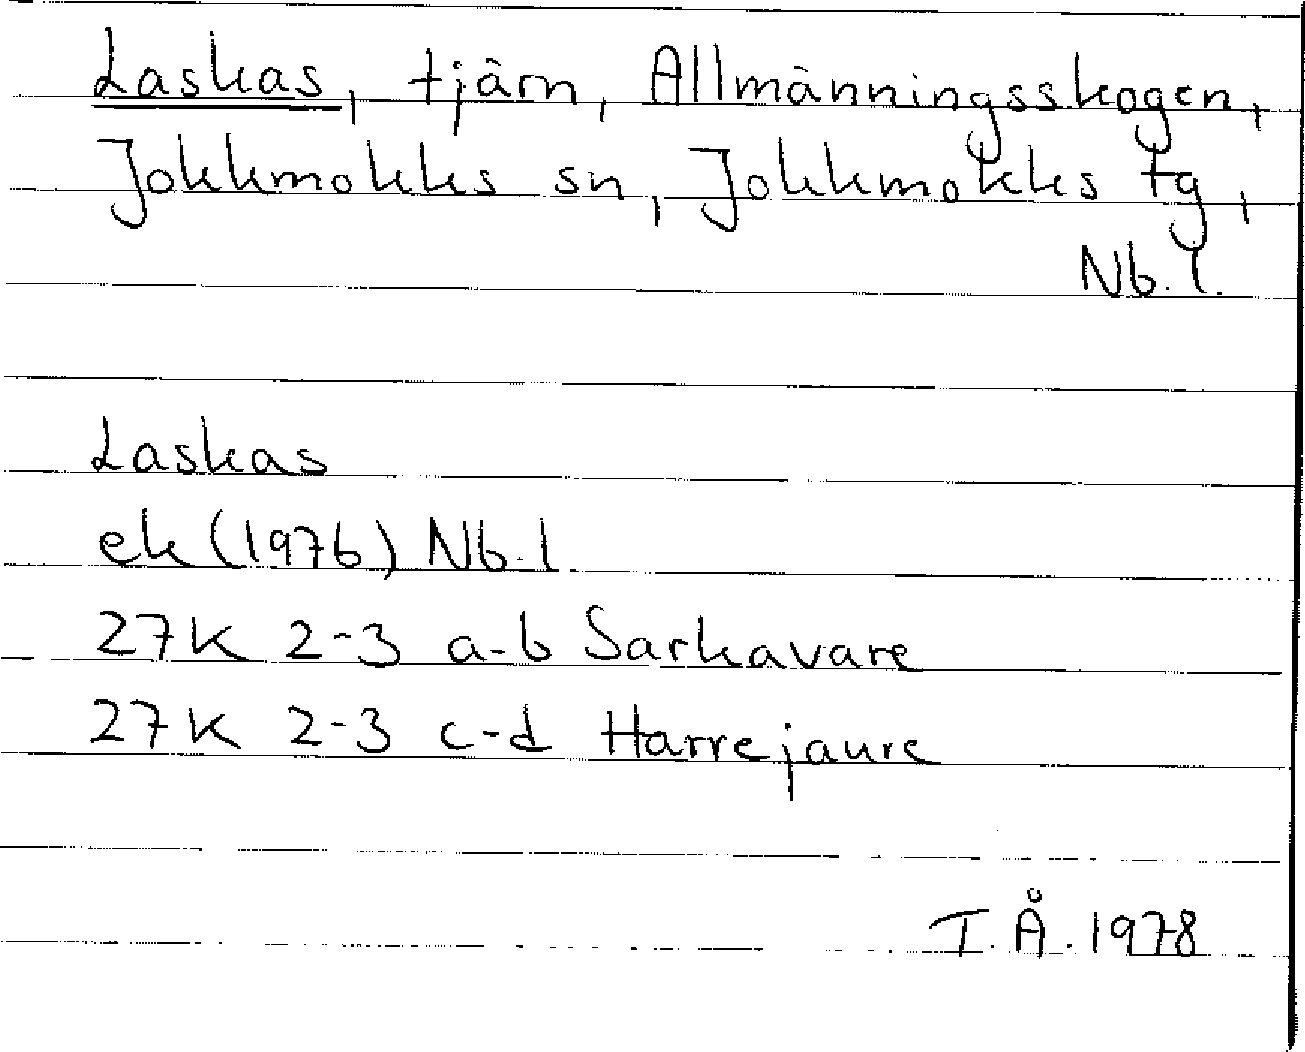 Laskas, tjärn, Allmänningsskogen,
Jokkmokks sn, Jokkmokks tg,
Nb.l.
Laskas
ek (1976) Nb.l
27K 2-3 a-b Sarkavare
27K 2-3 c-d Harrejaure
T.Å. 1978